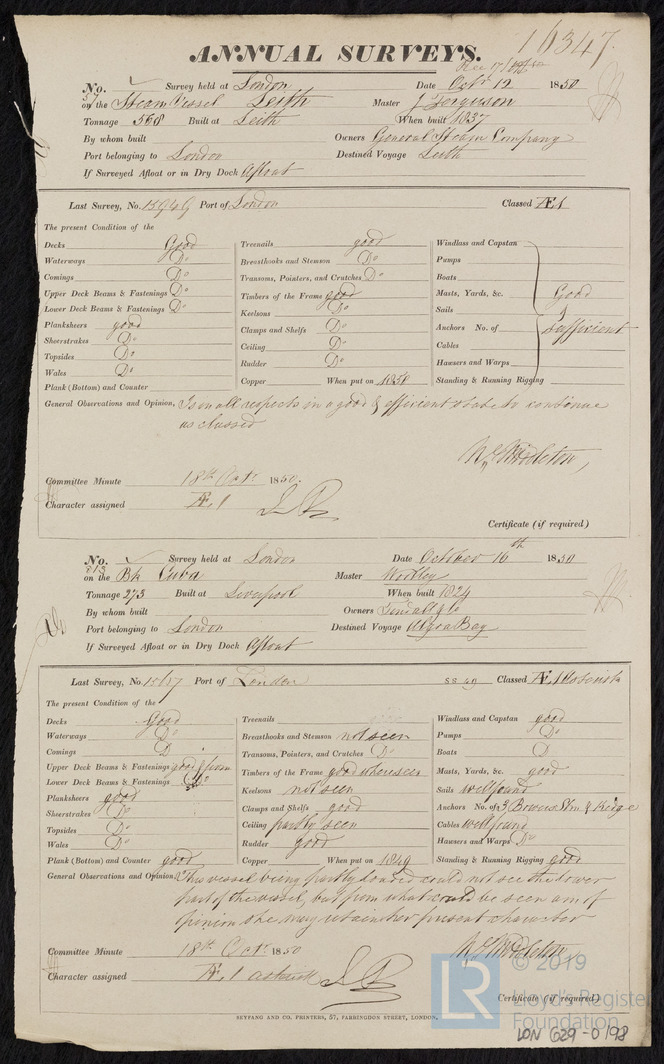 16347.
ANNUAL SURVEYS.
No. Survey held at London Date Octr 12 1850
on the Steam Vessel Leith Master J Ferguson
Tonnage 568 Built at Leith When built 1837
By whom built Owners General Steam Company
Port belonging to London Destined Voyage Leith
If Surveyed Afloat or in Dry Dock Afloat
Last Survey, No. 15949 Port of London Classed Æ 1
The present Condition of the
Decks Good
Waterways Do
Comings Do
Upper Deck Beams & Fastenings Do
Lower Deck Beams & Fastenings Do
Planksheers good
Sheerstrakes Do
Topsides Do
Wales Do
Plank (Bottom) and Counter
Treenails good
Breasthooks and Stemson Do
Transoms, Pointers, and Crutches Do
Timbers of the Frame good
Keelsons Do
Clamps and Shelfs Do
Ceiling Do
Rudder Do
Copper When put on 1850
Windlass and Capstan
Pumps
Boats
Masts, Yards, &c. Good
Sails &
Anchors No. of Sufficient
Cables
Hawsers and Warps
Standing & Running Rigging
General Observations and Opinion, Is in all respects in a good & efficient state to continue
as classed
Wm Middleton,
Committee Minute 18th Octr 1850.
Character assigned Æ 1
Certificate (if required)
No. Survey held at London Date October 16th 1850
813
on the Bk Cuba Master
Tonnage 273 Built at Liverpool When built 1824
By whom built Owners
Port belonging to London Destined Voyage Algoa Bay
If Surveyed Afloat or in Dry Dock Afloat
Last Survey, No. Port of London Classed Æ 1
The present Condition of the
Decks Good
Waterways Do
Comings D
Upper Deck Beams & Fastenings good
Lower Deck Beams & Fastenings Do
Planksheers good
Sheerstrakes Do
Topsides Do
Wales Do
Plank (Bottom) and Counter good
Treenails
Breasthooks and Stemson not seen
Transoms, Pointers, and Crutches Do
Timbers of the Frame good where seen
Keelsons not seen
Clamps and Shelfs good
Ceiling partly seen
Rudder good
Copper When put on 1849
Windlass and Capstan good
Pumps Do
Boats D
Masts, Yards, &c. good
Sails well found
Anchors No. of 3 Bowers Stm & Kedge
Cables well found
Hawsers and Warps Do
Standing & Running Rigging good
General Observations and Opinion, This vessel being partly loaded could not see the lower
part of the vessel, but from what could be seen am of
opinion she may retain her present character
Wm Middleton
Committee Minute 18th Octr 1850
Character assigned Æ 1
Certificate (if required)
SEYFANG AND CO. PRINTERS, 57, FARRINGDON STREET, LONDON.
LR © 2019
Lloyd's Register
Foundation
LON 629-0198